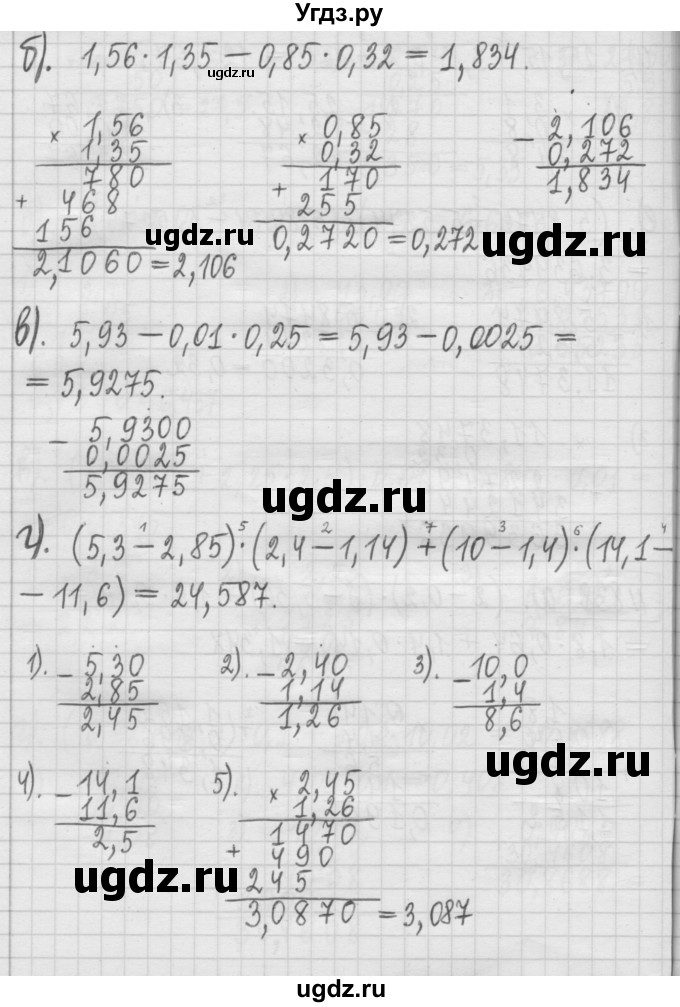 Угдз.ру
б). 1,56 · 1,35 − 0,85 · 0,32 = 1,834.
ugdz.ru
× 1,56
1,35
780
+ 468
156
2,1060 = 2,106
× 0,85
0,32
+ 170
255
0,2720 = 0,272
− 2,106
0,272
1,834
ugdz.ru
ugdz.ru
в). 5,93 − 0,01 · 0,25 = 5,93 − 0,0025 =
= 5,9275.
− 5,9300
0,0025
5,9275
ugdz.ru
1 5 2 7 3 6 4
г). (5,3 − 2,85) · (2,4 − 1,14) + (10 − 1,4) · (14,1 −
− 11,6) = 24,587.
1). − 5,30
2,85
2,45
2). − 2,40
1,14
1,26
3). − 10,0
1,4
8,6
ugdz.ru
4). − 14,1
11,6
2,5
ugdz.ru
5). × 2,45
1,26
1470
+ 490
245
3,0870 = 3,087
ugdz.ru
ugdz.ru